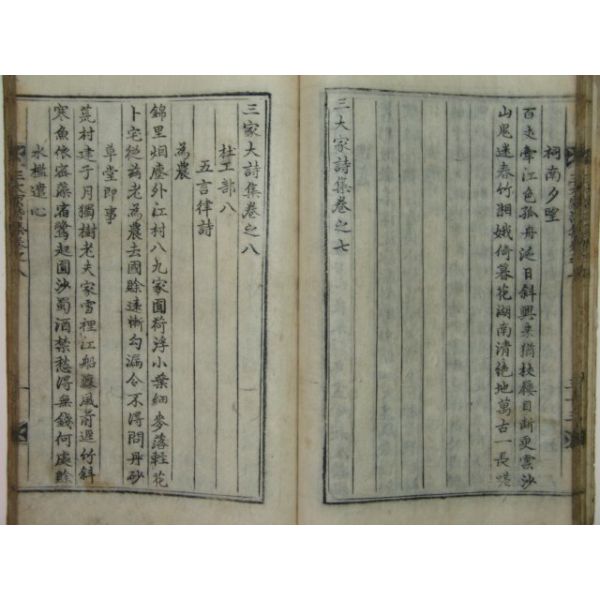 祠南夕望
百丈牽江色孤舟泛日斜興來猶杖屨目斷更雲沙
山鬼迷春竹湘娥倚暮花湖南清絶地萬古一長嗟
三大家詩集卷之七
三家大詩集卷之八
杜工部八
五言律詩
為農
錦里烟塵外江村八九家圓荷浮小葉細麥落輕花
卜宅從茲老為農去國賖遠慚勾漏令不得問丹砂
草堂即事
荒村建子月獨樹老夫家雪裡江船渡風前逕竹斜
寒魚依密藻宿鷺起圓沙蜀酒禁愁得無錢何處賖
水檻遣心